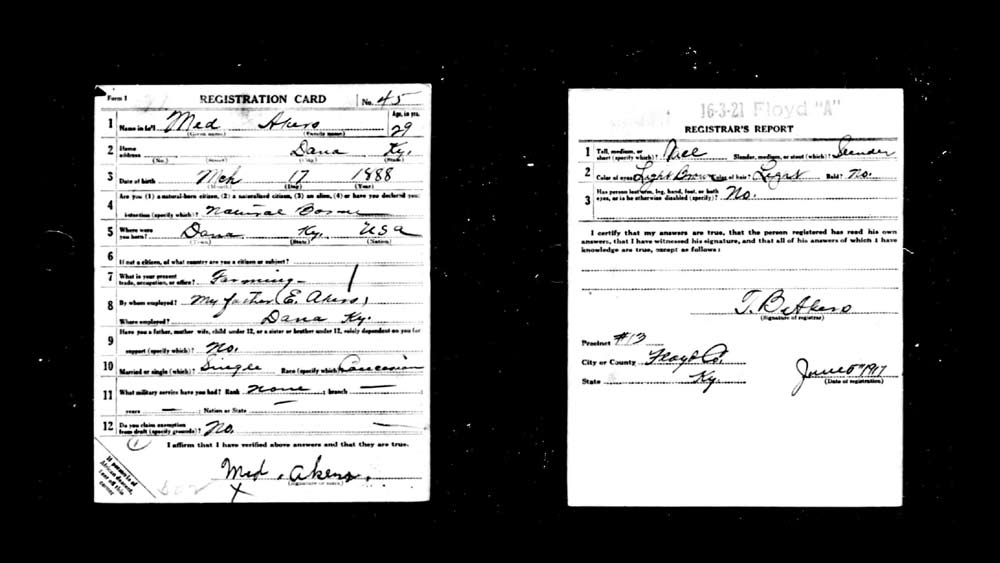 Form 1 REGISTRATION CARD No. 45
1 Name in full Med Akers Age, in yrs. 29
(Given name) (Family name)
2 Home address Dana Ky.
(No.) (Street) (City) (State)
3 Date of birth Mch 17 1888
(Month) (Day) (Year)
4 Are you (1) a natural-born citizen, (2) a naturalized citizen, (3) an alien, (4) or have you declared your
intention (specify which)? Natural Born
5 Where were you born? Dana Ky. USA
(Town) (State) (Nation)
6 If not a citizen, of what country are you a citizen or subject?
7 What is your present trade, occupation, or office? Farming
8 By whom employed? My father E. Akers
Where employed? Dana Ky.
9 Have you a father, mother, wife, child under 12, or a sister or brother under 12, solely dependent on you for
support (specify which)? No.
10 Married or single (which)? Single Race (specify which)? Caucasian
11 What military service have you had? Rank None ; branch —
years — ; Nation or State —
12 Do you claim exemption from draft (specify grounds)? No. —
I affirm that I have verified above answers and that they are true.
Med . Akers .
(Signature or mark)
X
If person is of
African descent,
tear off this
corner
16-3-21 Floyd "A"
REGISTRAR'S REPORT
1 Tall, medium, or short (specify which)? Slender, medium, or stout (which)? Slender
2 Color of eyes? Light Brown Color of hair? Light Bald? No.
3 Has person lost arm, leg, hand, foot, or both
eyes, or is he otherwise disabled (specify)? No.
I certify that my answers are true, that the person registered has read his own
answers, that I have witnessed his signature, and that all of his answers of which I have
knowledge are true, except as follows:
T. B. Akers
(Signature of registrar)
Precinct #13
City or County Floyd Co.
State Ky.
June 5" 1917
(Date of registration)